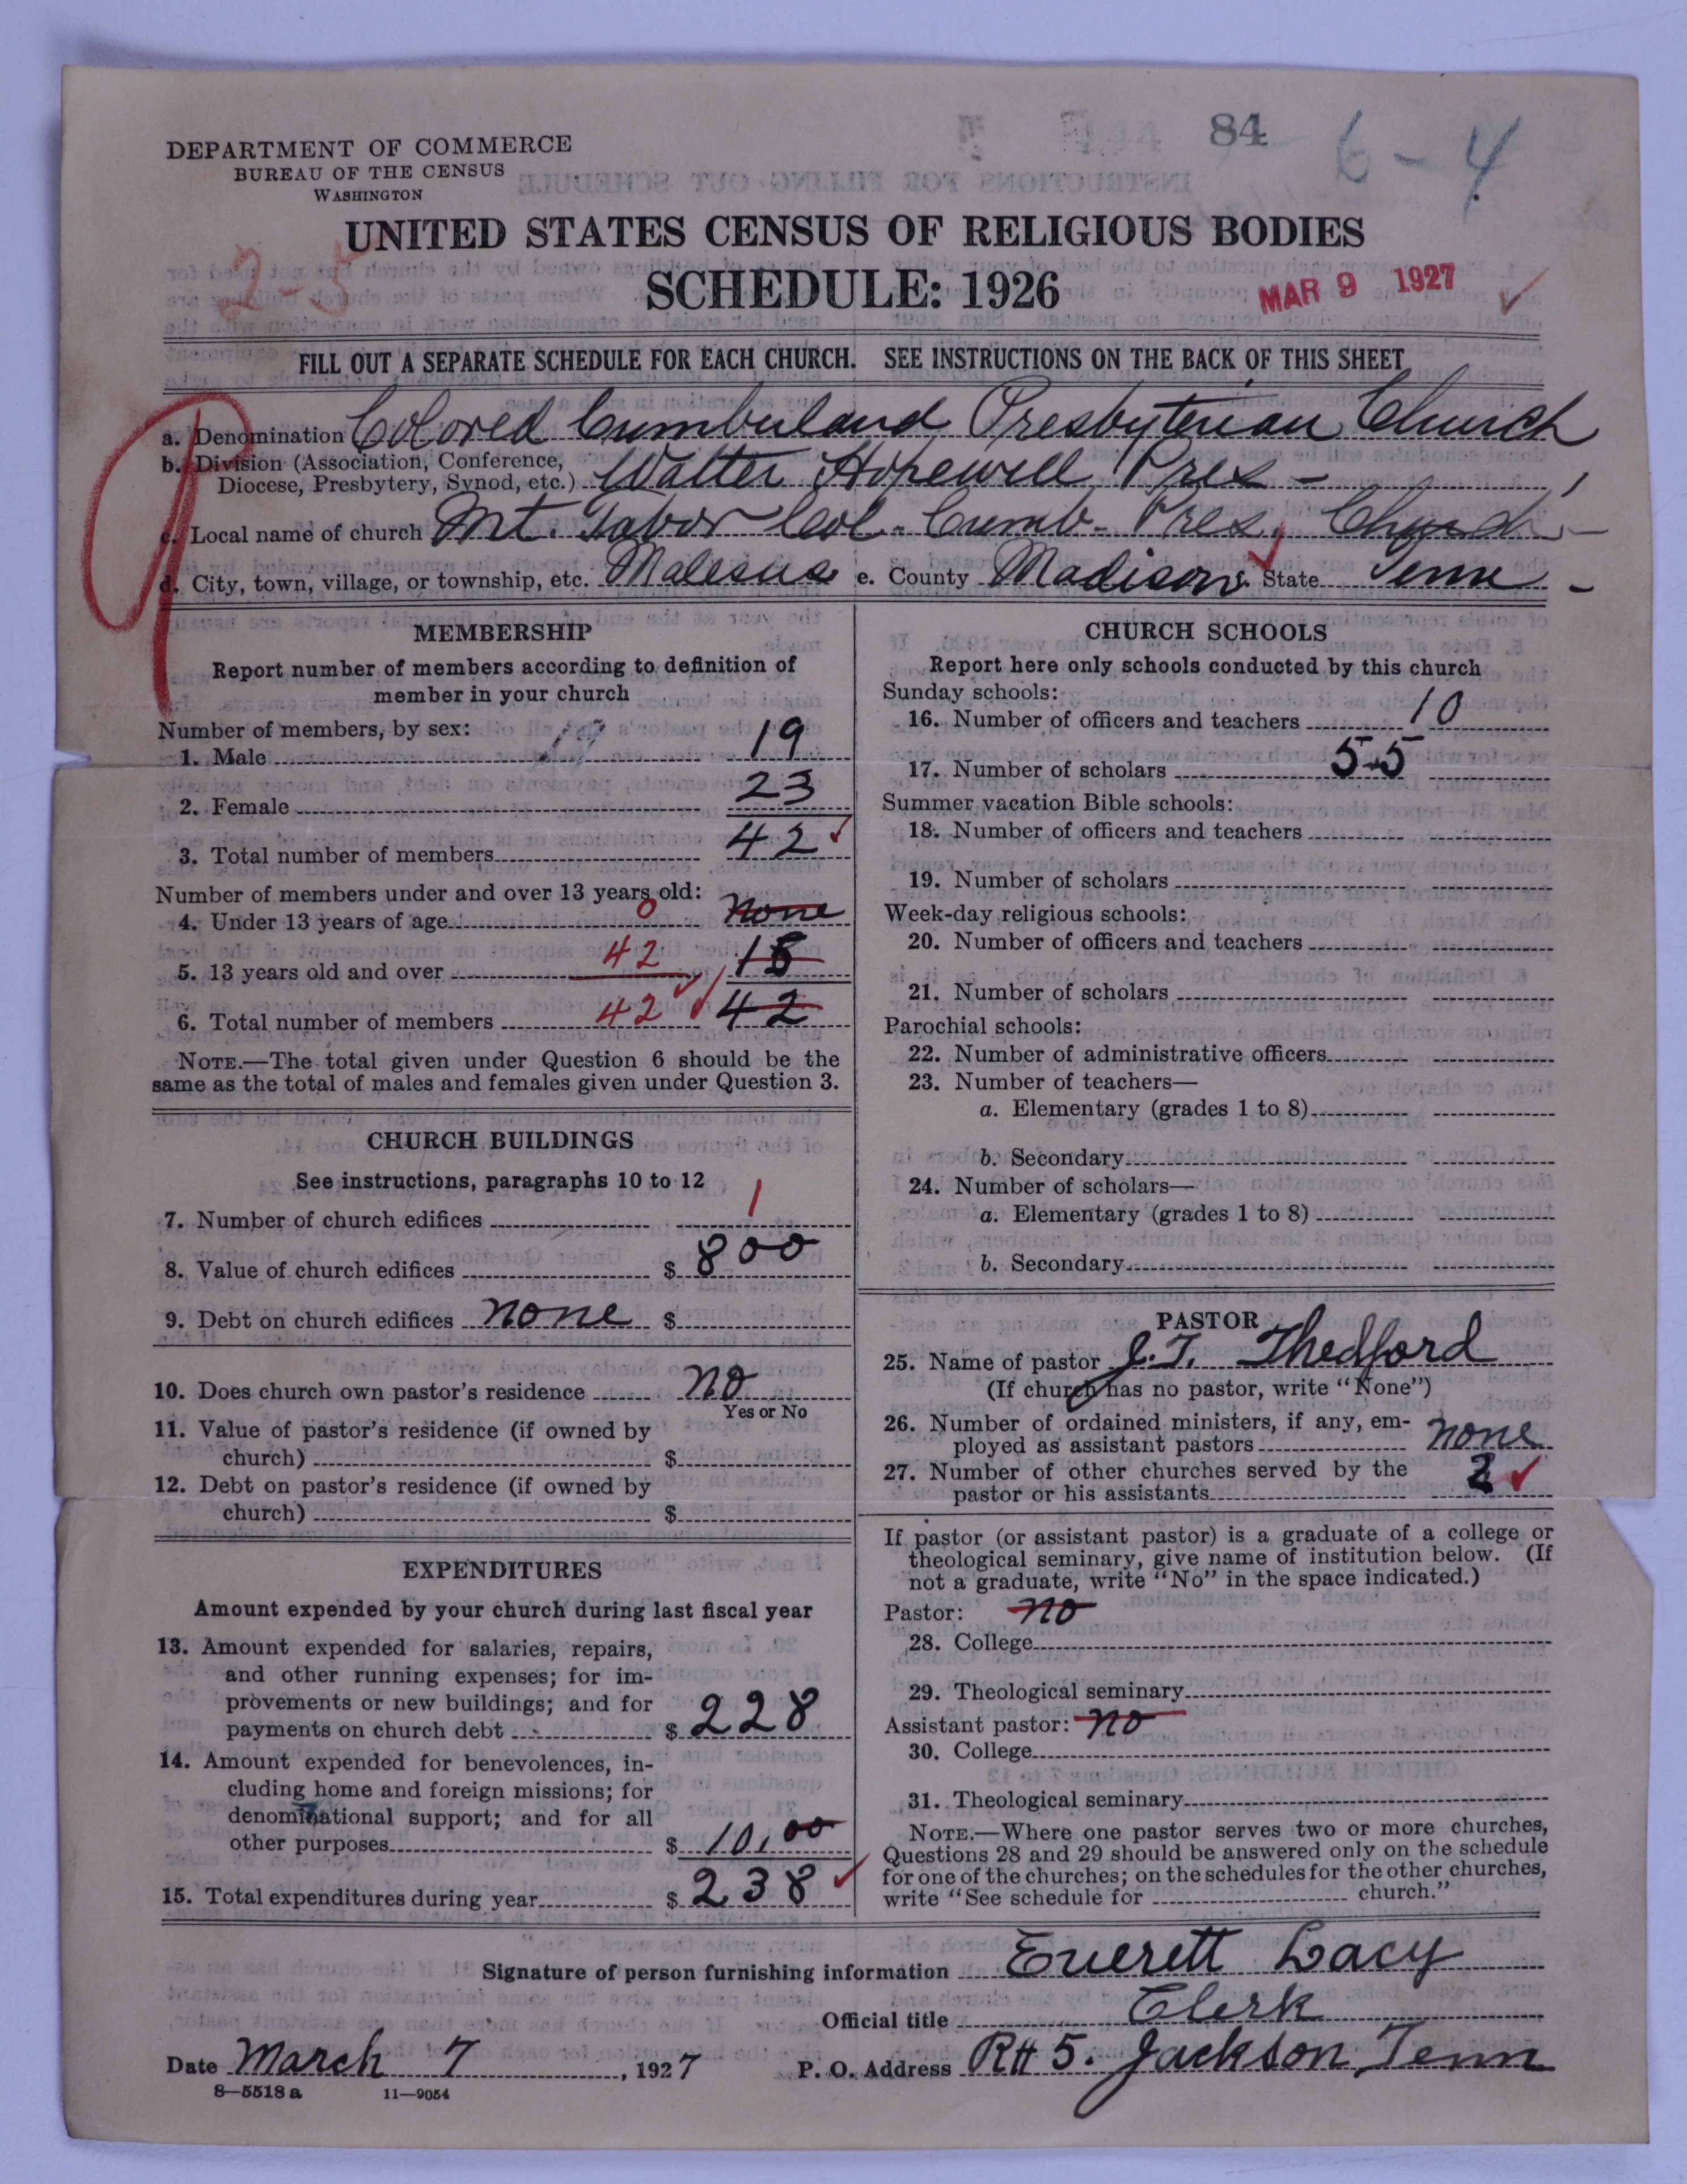 84
6-4
DEPARTMENT OF COMMERCE
BUREAU OF THE CENSUS
WASHINGTON
UNITED STATES CENSUS OF RELIGIOUS BODIES
2-5
SCHEDULE: 1926
MAR 9 1927
FILL OUT A SEPARATE SCHEDULE FOR EACH CHURCH. SEE INSTRUCTIONS ON THE BACK OF THIS SHEET
a. Denomination Colored Cumberland Presbyterian Church
b. Division (Association, Conference,
Diocese, Presbytery, Synod, etc.) Walter Hopewell Pres -
c. Local name of church Mt. Tabor Col. Cumb- Pres. Church
d. City, town, village, or township, etc. Malesus e. County Madison f. State Tenn -
MEMBERSHIP
Report number of members according to definition of
member in your church
Number of members, by sex:
1. Male 19 19
2. Female 23
3. Total number of members 42
Number of members under and over 13 years old:
4. Under 13 years of age 0 none
5. 13 years old and over 42 18
6. Total number of members 42 42
NOTE.—The total given under Question 6 should be the
same as the total of males and females given under Question 3.
CHURCH BUILDINGS
See instructions, paragraphs 10 to 12
7. Number of church edifices 1
8. Value of church edifices $ 800
9. Debt on church edifices none $
10. Does church own pastor's residence no
Yes or No
11. Value of pastor's residence (if owned by
church) $
12. Debt on pastor's residence (if owned by
church) $
EXPENDITURES
Amount expended by your church during last fiscal year
13. Amount expended for salaries, repairs,
and other running expenses; for im-
provements or new buildings; and for
payments on church debt $ 228
14. Amount expended for benevolences, in-
cluding home and foreign missions; for
denominational support; and for all
other purposes $ 10.00
15. Total expenditures during year $ 238
CHURCH SCHOOLS
Report here only schools conducted by this church
Sunday schools:
16. Number of officers and teachers 10
17. Number of scholars 55
Summer vacation Bible schools:
18. Number of officers and teachers
19. Number of scholars
Week-day religious schools:
20. Number of officers and teachers
21. Number of scholars
Parochial schools:
22. Number of administrative officers
23. Number of teachers—
a. Elementary (grades 1 to 8)
b. Secondary
24. Number of scholars—
a. Elementary (grades 1 to 8)
b. Secondary
PASTOR
25. Name of pastor J. T. Thedford
(If church has no pastor, write "None")
26. Number of ordained ministers, if any, em-
ployed as assistant pastors none
27. Number of other churches served by the
pastor or his assistants 2
If pastor (or assistant pastor) is a graduate of a college or
theological seminary, give name of institution below. (If
not a graduate, write "No" in the space indicated.)
Pastor: no
28. College
29. Theological seminary
Assistant pastor: no
30. College
31. Theological seminary
NOTE.—Where one pastor serves two or more churches,
Questions 28 and 29 should be answered only on the schedule
for one of the churches; on the schedules for the other churches,
write "See schedule for church."
Signature of person furnishing information Everett Lacy
Official title Clerk
Date March 7, 1927 P. O. Address R#5. Jackson, Tenn
8—5518 a 11—9054